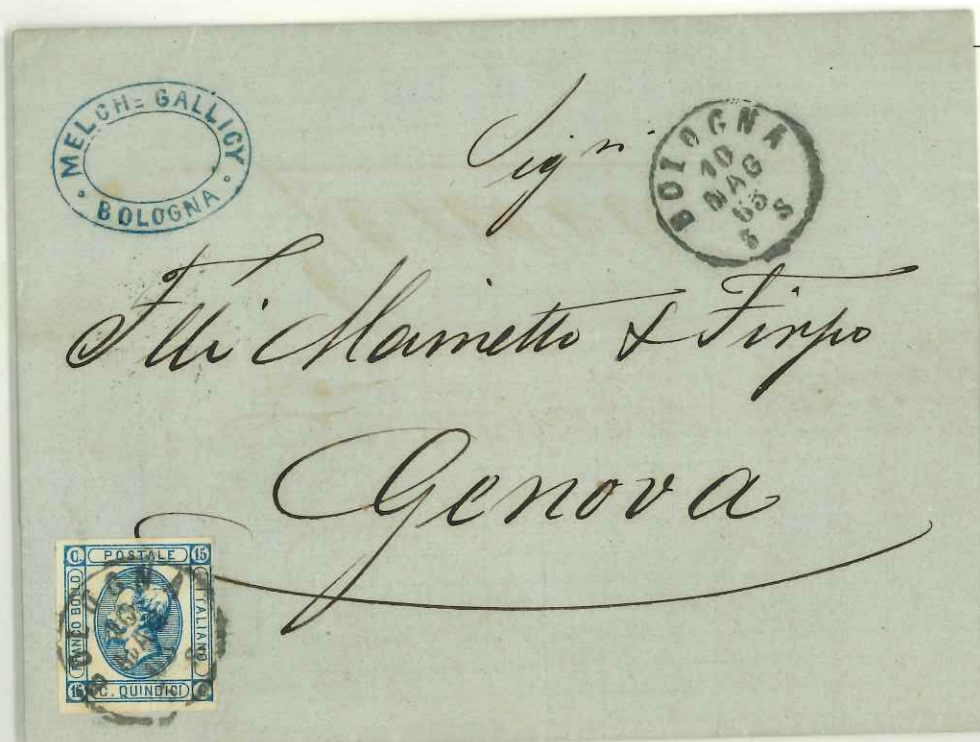 MELCH= GALLICY
BOLOGNA
Sigri
BOLOGNA
10
MAG
65
3 S
Flli Mainetto & Firpo
Genova
C. POSTALE 15
FRANCO BOLLO
ITALIANO
15 C. QUINDICI C.
BOLOGNA
10
MAG